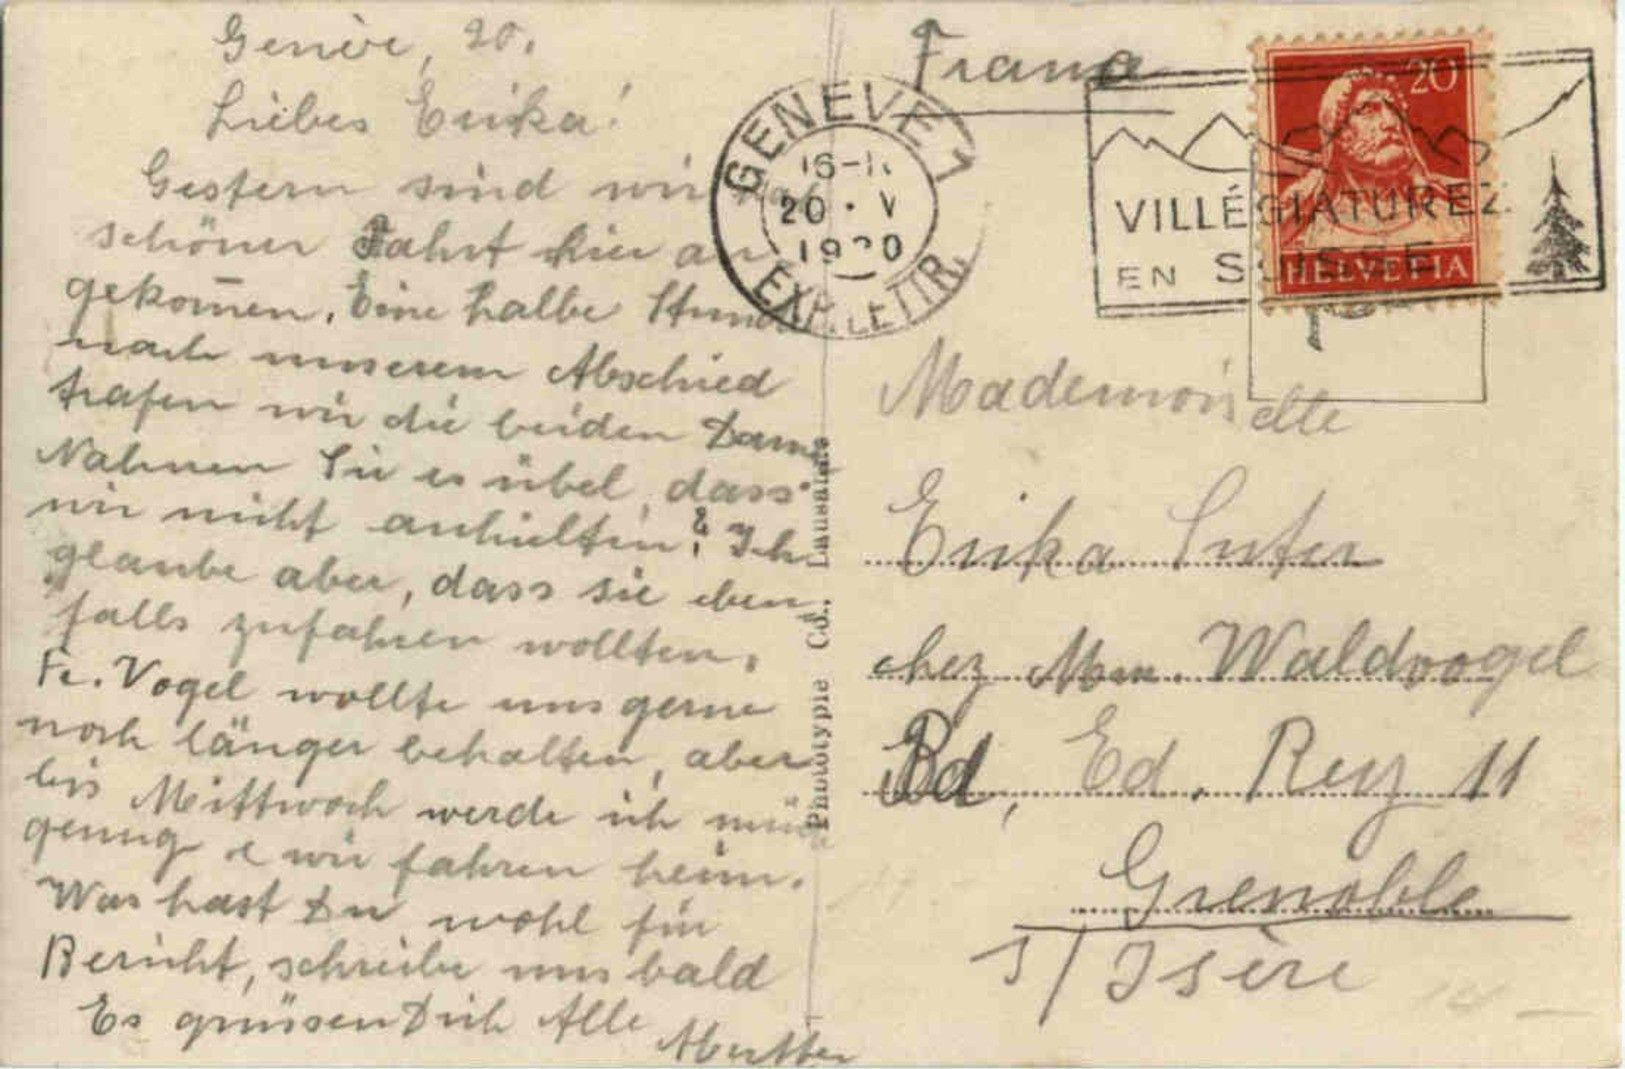 Genève, 20.
Liebes Erika!
Gestern sind wir nach
schöner Fahrt hier an
gekom̄en. Eine halbe Stunde
nach unserem Abschied
trafen wir die beiden Damen
Nahmen Sie es übel, dass
wir nicht anhielten? Ich
glaube aber, dass sie eben
falls zufahren wollten.
Fr. Vogel wollte uns gerne
noch länger behalten, aber
bis Mittwoch werde ich müde
genug & wir fahren heim.
Was hast Du wohl für
Bericht, schreibe uns bald
Es grüssen Dich Alle
Phototypie Co., Lausanne
France
GENÈVE 1
20 · V
EXP. LETTR.
VILLÉGIATUREZ
EN SUISSE
20
HELVETIA
Mademoiselle
Erika Suter
chez Mme. Waldvogel
Bd, Ed. Rey 11
Grenoble
s/Isère